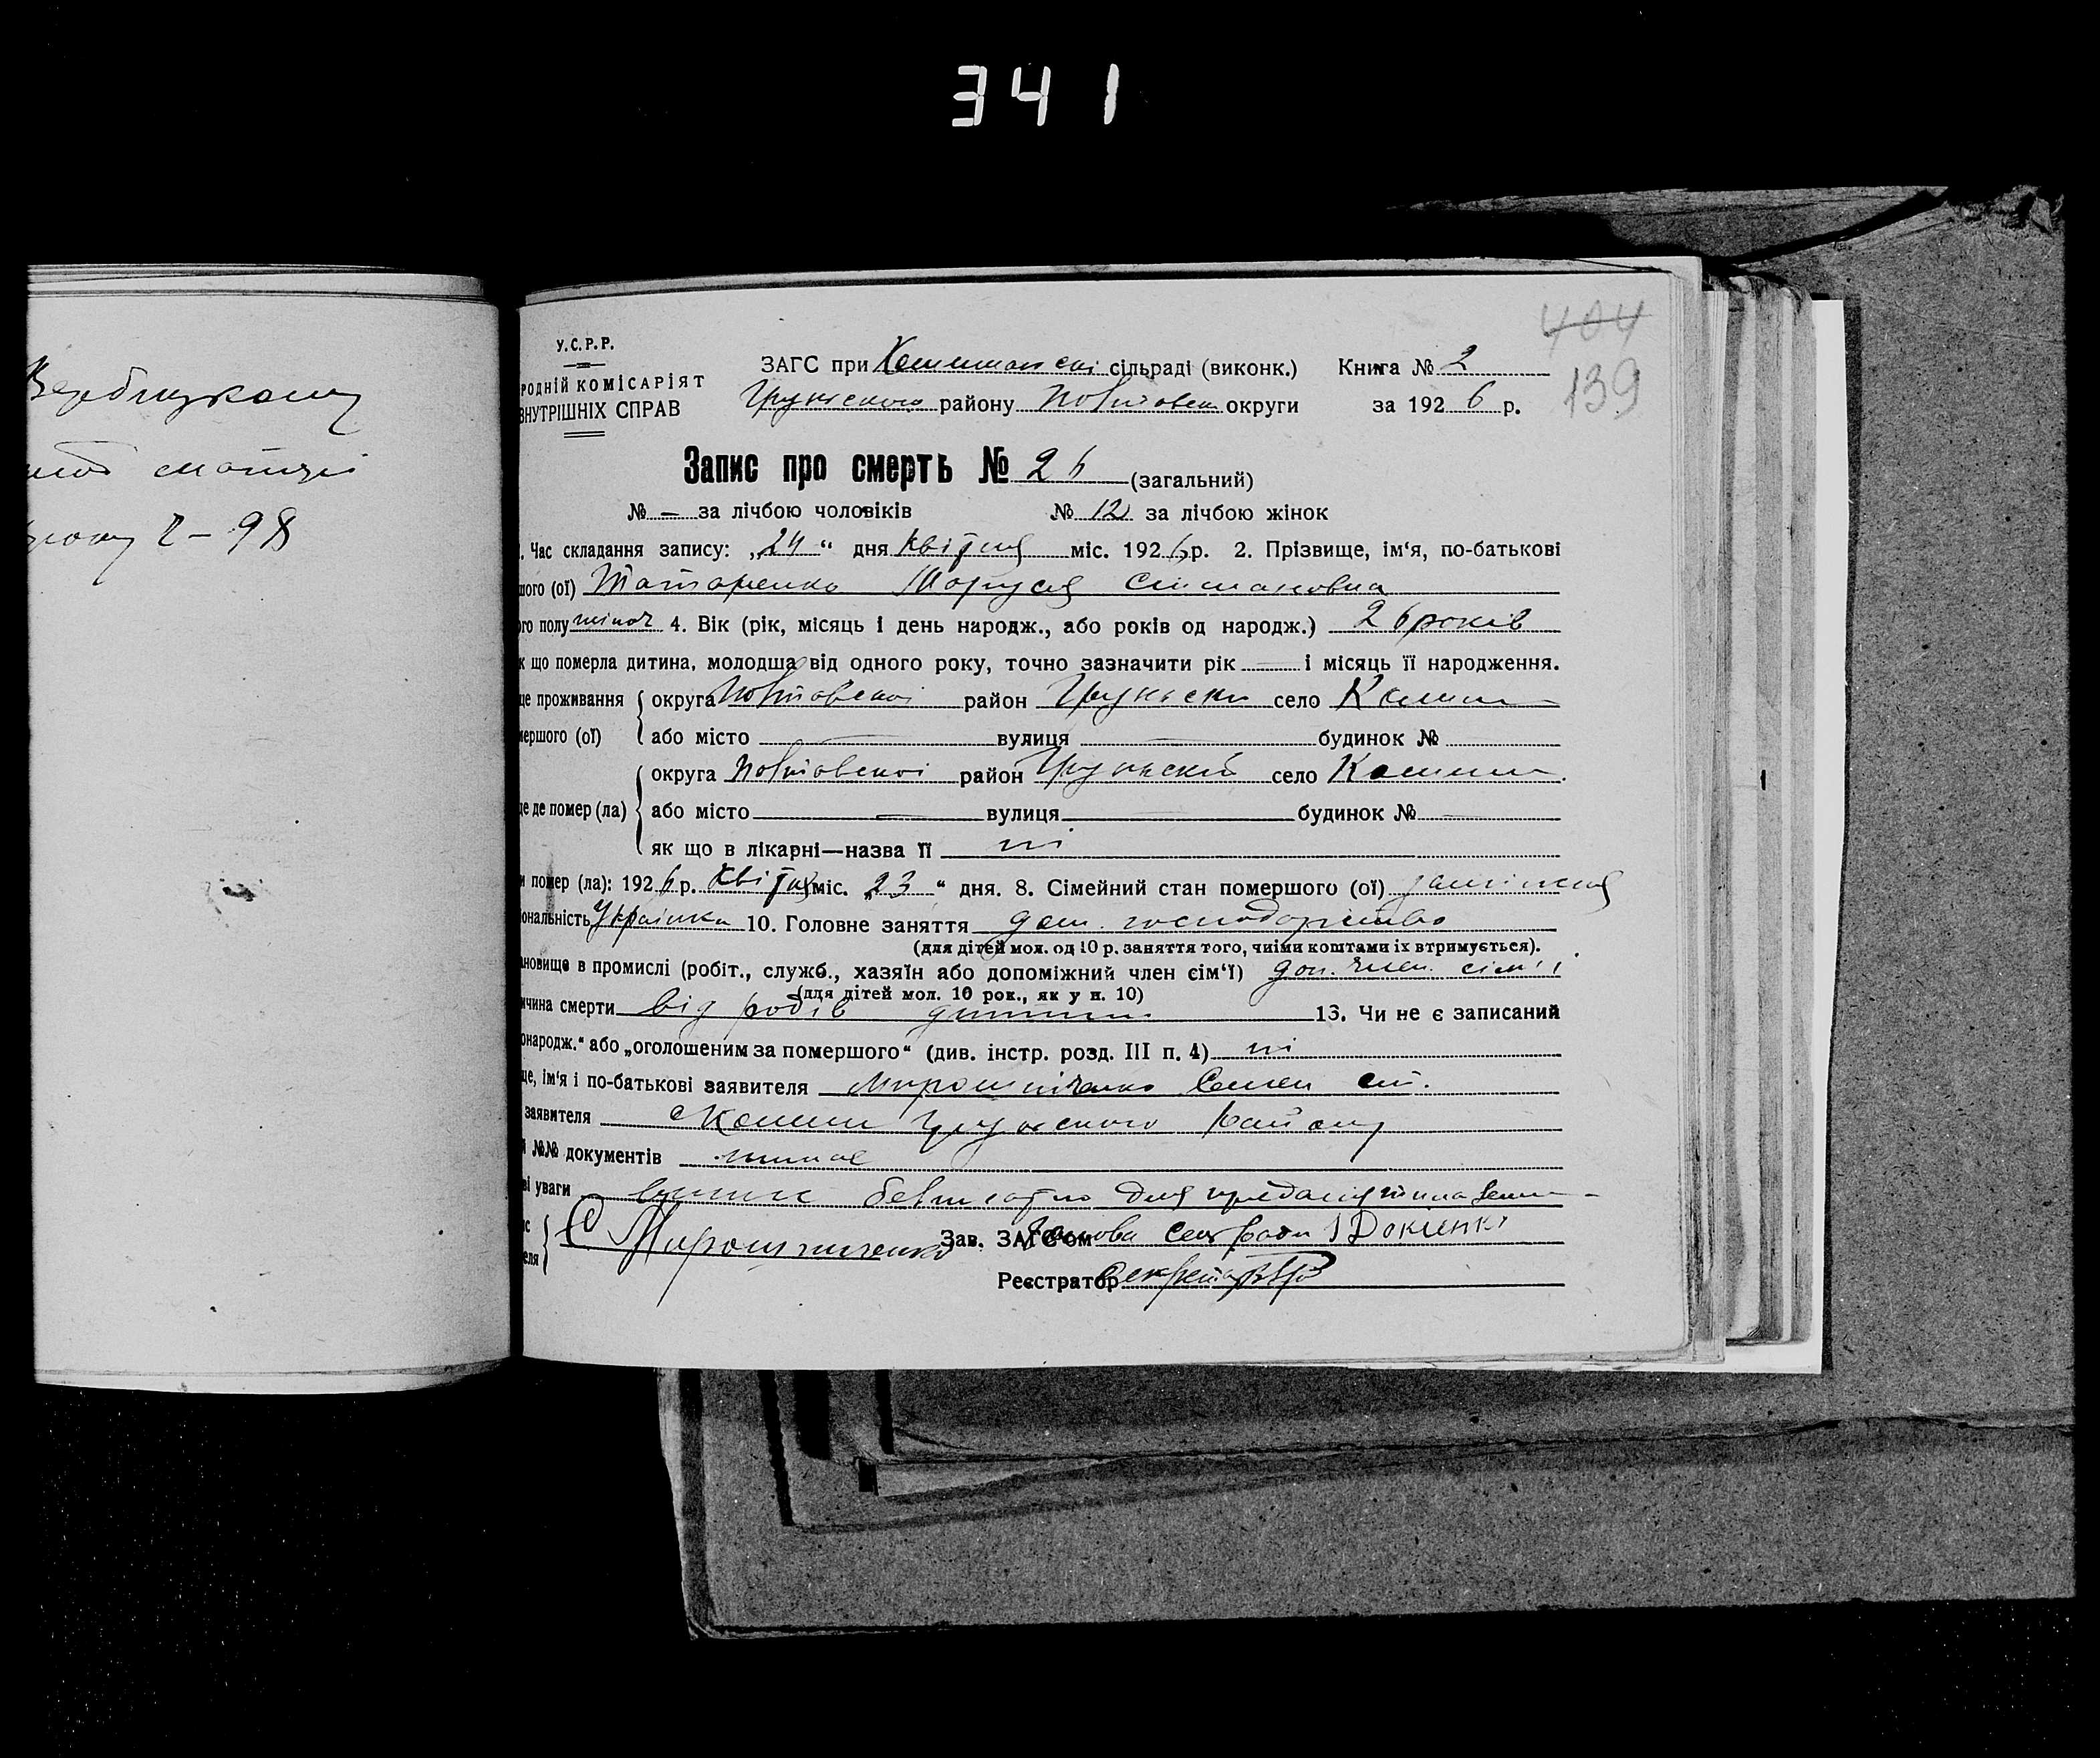 341
Вербицкому
матері
2-98
404
139
У.С.Р.Р.
РОДНІЙ КОМІСАРІЯТ
ВНУТРІШНІХ СПРАВ
ЗАГС при сільраді (виконк.) Книга № 2
Грунського району Полтавськ округи за 1926 р.
Запис про смерть № 26 (загальний)
№ — за лічбою чоловіків № 12 за лічбою жінок
. Час складання запису: „24“ дня Квітня міс. 1926 р. 2. Прізвище, ім‘я, по-батькові
шого (ої) Татаренко Маруся
ого полу жіноч 4. Вік (рік, місяць і день народж., або років од народж.) 26 років
к що померла дитина, молодша від одного року, точно зазначити рік — і місяць її народження.
це проживання округа Полтавської район Грунськи село
мершого (ої) або місто — вулиця — будинок №
округа Полтавської район Грунський село
це де помер (ла) або місто — вулиця — будинок № —
як що в лікарні—назва її ні
и помер (ла): 1926 р. Квітня міс. „23“ дня. 8. Сімейний стан помершого (ої) заміжня
ональність Українка 10. Головне заняття дом. господарство
(для дітей мол. од 10 р. заняття того, чиїми коштами їх втримується).
ановище в промислі (робіт., служб., хазяїн або допоміжний член сім‘ї) доп. член. сім'ї
(для дітей мол. 10 рок., як у п. 10)
ичина смерти від родів дитини 13. Чи не є записаний
онародж.“ або „оголошеним за помершого“ (див. інстр. розд. III п. 4) ні
ще, ім‘я і по-батькові заявителя Мирошніченко Семен
заявителя Грунського Району
й №№ документів немає
ві уваги безплатно для
С Мирошниченко Зав. ЗАГС‘ом Голова Сельради
Реєстратор Секретар